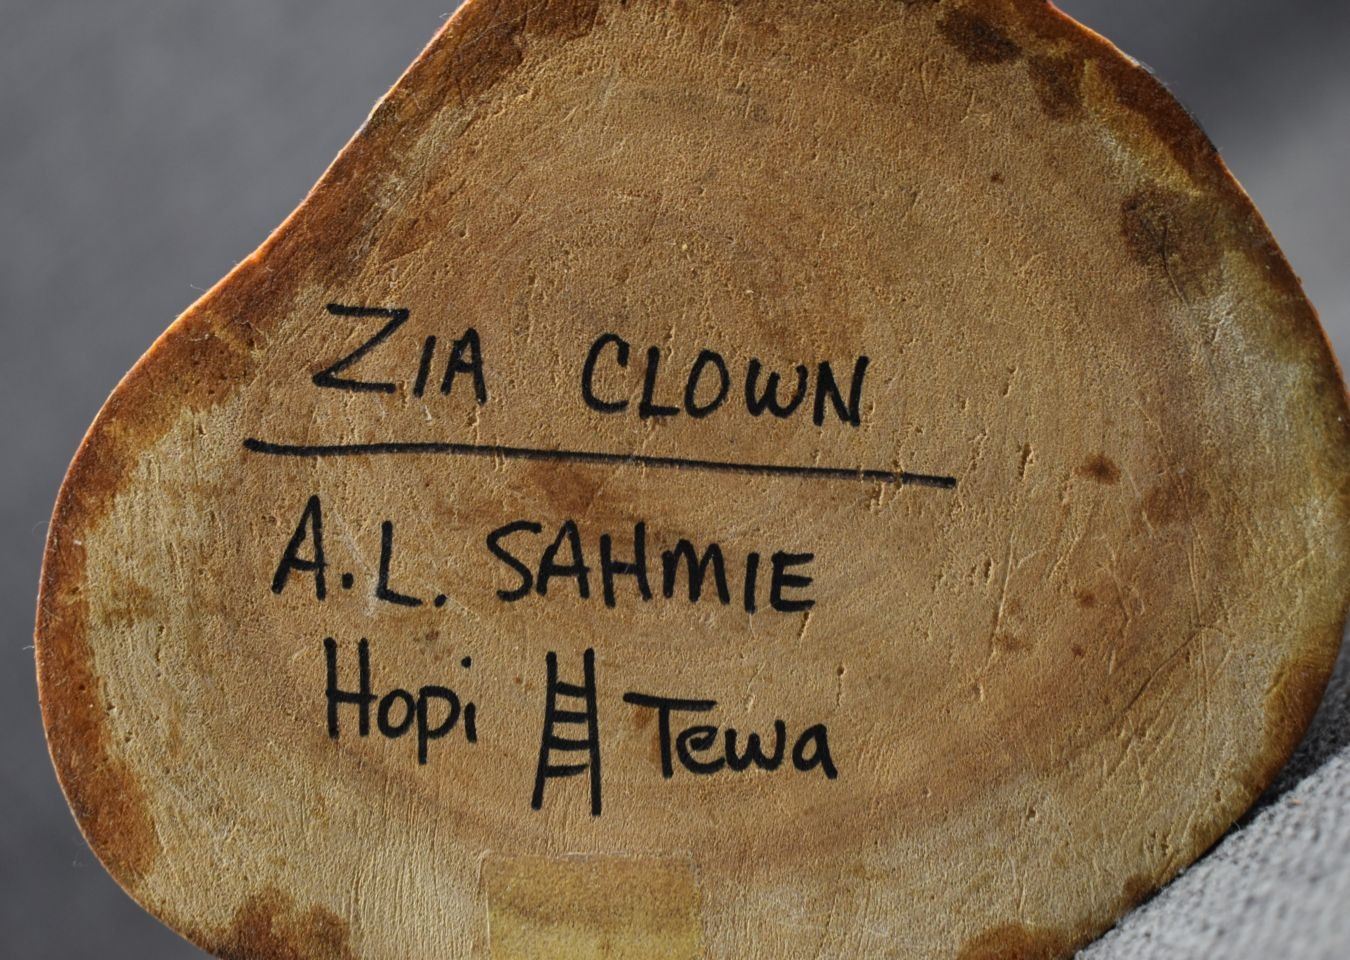 ZIA CLOWN
A.L. SAHMIE
Hopi Tewa